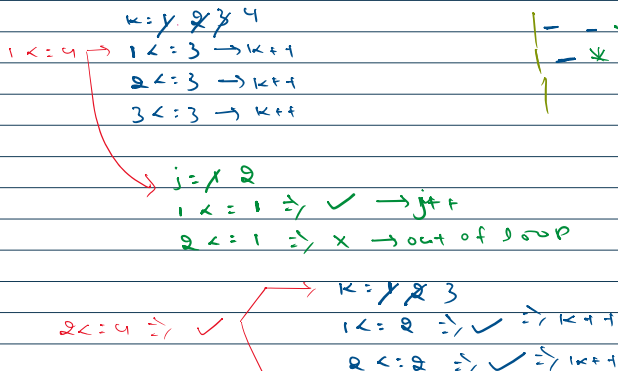 k = 1 2 3 4
1 <= 4 → 1 <= 3 → k++
2 <= 3 → k++
3 <= 3 → k++
j = 1 2
1 <= 1 => ✓ → j++
2 <= 1 => x → out of loop
k = 1 2 3
2 <= 4 => ✓ 1 <= 2 => ✓ => k++
2 <= 2 => ✓ => k++